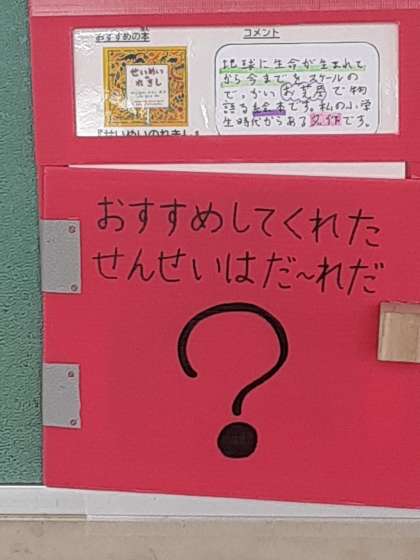 おすすめの本
せいめいの
れきし
『せいめいのれきし』
コメント
地球に生命が生まれて
から今までを、スケールの
でっかいお芝居で物
語る絵本です。私の小学
生時代からある名作です。
おすすめしてくれた
せんせいはだ〜れだ
?